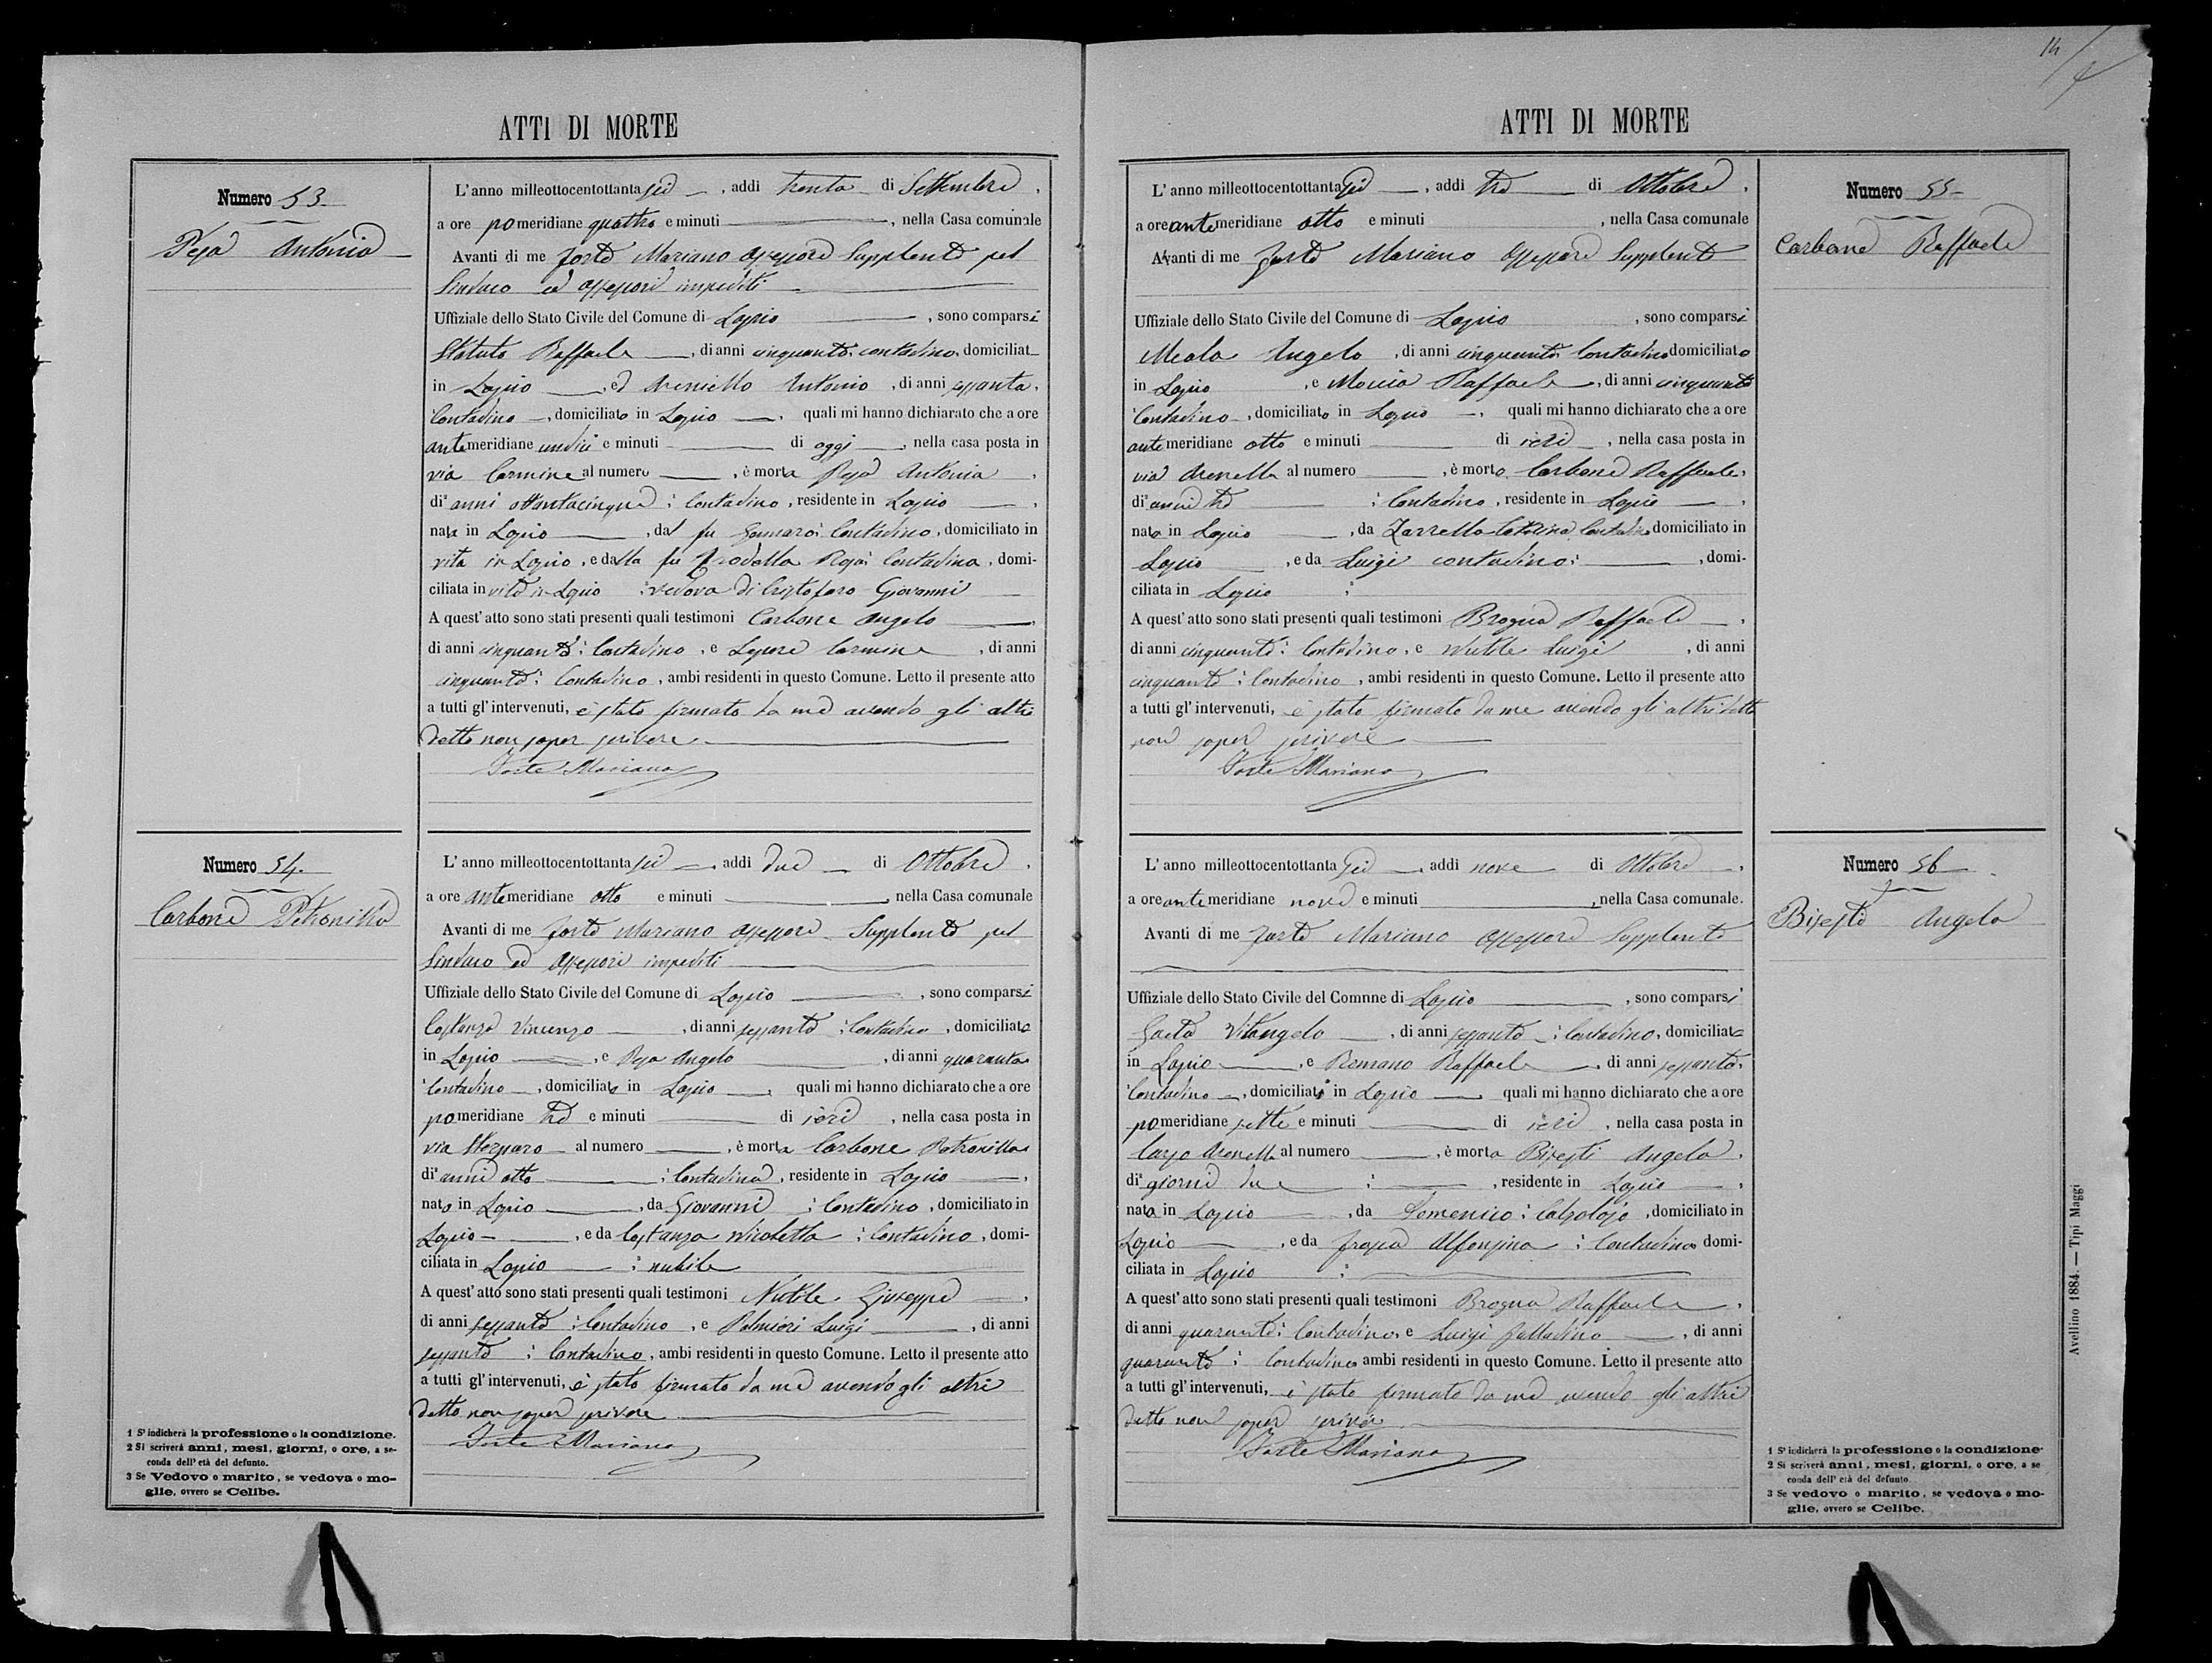 14
ATTI DI MORTE
Numero 53.
Pepa Antonia
L'anno milleottocentottanta sei, addi trenta di Settembre,
a ore pomeridiane quattro e minuti, nella Casa comunale
Avanti di me Forte Mariano Assessore Supplente pel
Sindaco ed Assessori impediti
Uffiziale dello Stato Civile del Comune di Lapio, sono comparsi
Statuto Raffaele, di anni cinquanta, contadino, domiciliat
in Lapio, ed Areniello Antonio, di anni sessanta,
Contadino, domiciliato in Lapio, quali mi hanno dichiarato che a ore
antemeridiane undici e minuti di oggi, nella casa posta in
via Carmine al numero, è morta Pepa Antonia,
di anni ottantacinque; Contadina, residente in Lapio,
nata in Lapio, dal fu Gennaro; Contadino, domiciliato in
vita in Lapio, e dalla fu Contadina, domi-
ciliata in vita in Lapio; vedova di Cristofaro Giovanni
A quest'atto sono stati presenti quali testimoni Carbone Angelo,
di anni cinquanta; Contadino, e Lepore Carmine, di anni
cinquanta; Contadino, ambi residenti in questo Comune. Letto il presente atto
a tutti gl'intervenuti, è stato firmato da me avendo gli altri
detto non saper scrivere
Forte Mariano
Numero 54.
Carbone Petronilla
L'anno milleottocentottanta sei, addi due di Ottobre,
a ore antemeridiane otto e minuti, nella Casa comunale
Avanti di me Forte Mariano Assessore Supplente pel
Sindaco ed Assessori impediti
Uffiziale dello Stato Civile del Comune di Lapio, sono comparsi
Costanza Vincenzo, di anni sessanta; Contadino, domiciliato
in Lapio, e Pepa Angelo, di anni quaranta
Contadino, domiciliato in Lapio, quali mi hanno dichiarato che a ore
pomeridiane tre e minuti di ieri, nella casa posta in
via al numero, è morta Carbone Petronilla
di anni otto; Contadina, residente in Lapio,
nata in Lapio, da Giovanni; Contadino, domiciliato in
Lapio, e da Costanza Nicoletta; Contadina, domi-
ciliata in Lapio; nubile
A quest'atto sono stati presenti quali testimoni Nutile Giuseppe,
di anni sessanta; Contadino, e Palmieri Luigi, di anni
sessanta; Contadino, ambi residenti in questo Comune. Letto il presente atto
a tutti gl'intervenuti, è stato firmato da me avendo gli altri
detto non saper scrivere
Forte Mariano
1 S'indicherà la professione o la condizione.
2 Si scriverà anni, mesi, giorni, o ore, a se-
conda dell'età del defunto.
3 Se Vedovo o marito, se vedova o mo-
glie, ovvero se Celibe.
ATTI DI MORTE
Numero 55
Carbone Raffaele
L'anno milleottocentottanta sei, addi tre di Ottobre,
a ore antemeridiane otto e minuti, nella Casa comunale
Avanti di me Forte Mariano Assessore Supplente
Uffiziale dello Stato Civile del Comune di Lapio, sono comparsi
Meola Angelo, di anni cinquanta Contadino domiciliato
in Lapio, e Raffaele, di anni cinquanta
Contadino, domiciliato in Lapio, quali mi hanno dichiarato che a ore
antemeridiane otto e minuti di ieri, nella casa posta in
via Arenella al numero, è morto Carbone Raffaele,
di anni tre; Contadino, residente in Lapio,
nato in Lapio, da Zarrella Caterina Contadina domiciliato in
Lapio, e da Luigi contadino;, domi-
ciliata in Lapio;
A quest'atto sono stati presenti quali testimoni Brogna Raffaele,
di anni cinquanta; Contadino, e Nutile Luigi, di anni
cinquanta; Contadino, ambi residenti in questo Comune. Letto il presente atto
a tutti gl'intervenuti, è stato firmato da me avendo gli altri detto
non saper scrivere
Forte Mariano
Numero 56
Bisesti Angela
L'anno milleottocentottanta sei, addi nove di Ottobre,
a ore antemeridiane nove e minuti, nella Casa comunale.
Avanti di me Forte Mariano Assessore Supplente
Uffiziale dello Stato Civile del Comnne di Lapio, sono comparsi
Gaeta Vitangelo, di anni sessanta; Contadino, domiciliato
in Lapio, e Romano Raffaele, di anni sessanta,
Contadino, domiciliati in Lapio quali mi hanno dichiarato che a ore
pomeridiane sette e minuti di ieri, nella casa posta in
largo Arenella al numero, è morta Bisesti Angela,
di giorni due;, residente in Lapio,
nata in Lapio, da Domenico; Calzolajo, domiciliato in
Lapio, e da Alfonsina; Contadina domi-
ciliata in Lapio;
A quest'atto sono stati presenti quali testimoni Brogna Raffaele,
di anni quaranta; Contadino, e Luigi, di anni
quaranta; Contadino ambi residenti in questo Comune. Letto il presente atto
a tutti gl'intervenuti, è stato firmato da me avendo gli altri
detto non saper scrivere
Forte Mariano
1 S'indicherà la professione o la condizione.
2 Si scriverà anni, mesi, giorni, o ore, a se
conda dell'età del defunto.
3 Se vedovo o marito, se vedova o mo-
glie, ovvero se Celibe.
Avellino 1884. — Tipi Maggi